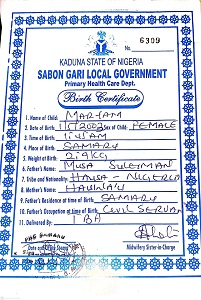 No. 6309
KADUNA STATE OF NIGERIA
SABON GARI LOCAL GOVERNMENT
Primary Health Care Dept.
Birth Certificate
1. Name of Child: MARIAM
2. Date of Birth: Sex of Child: FEMALE
3. Time of Birth: 1:45 AM
4. Place of Birth: SAMARU
5. Weight of Birth: 2.9KG
6. Father's Name: MUSA SULEIMAN
7. Tribe and Nationality: HAUSA - NIGERIA
8. Mother's Name: HAUWA'U
9. Father's Residence at time of Birth: SAMARU
10. Father's Occupation at time of Birth: CIVIL SERVANT
11. Delivered By:
Date and Official Stamp
Midwifery Sister-in-Charge